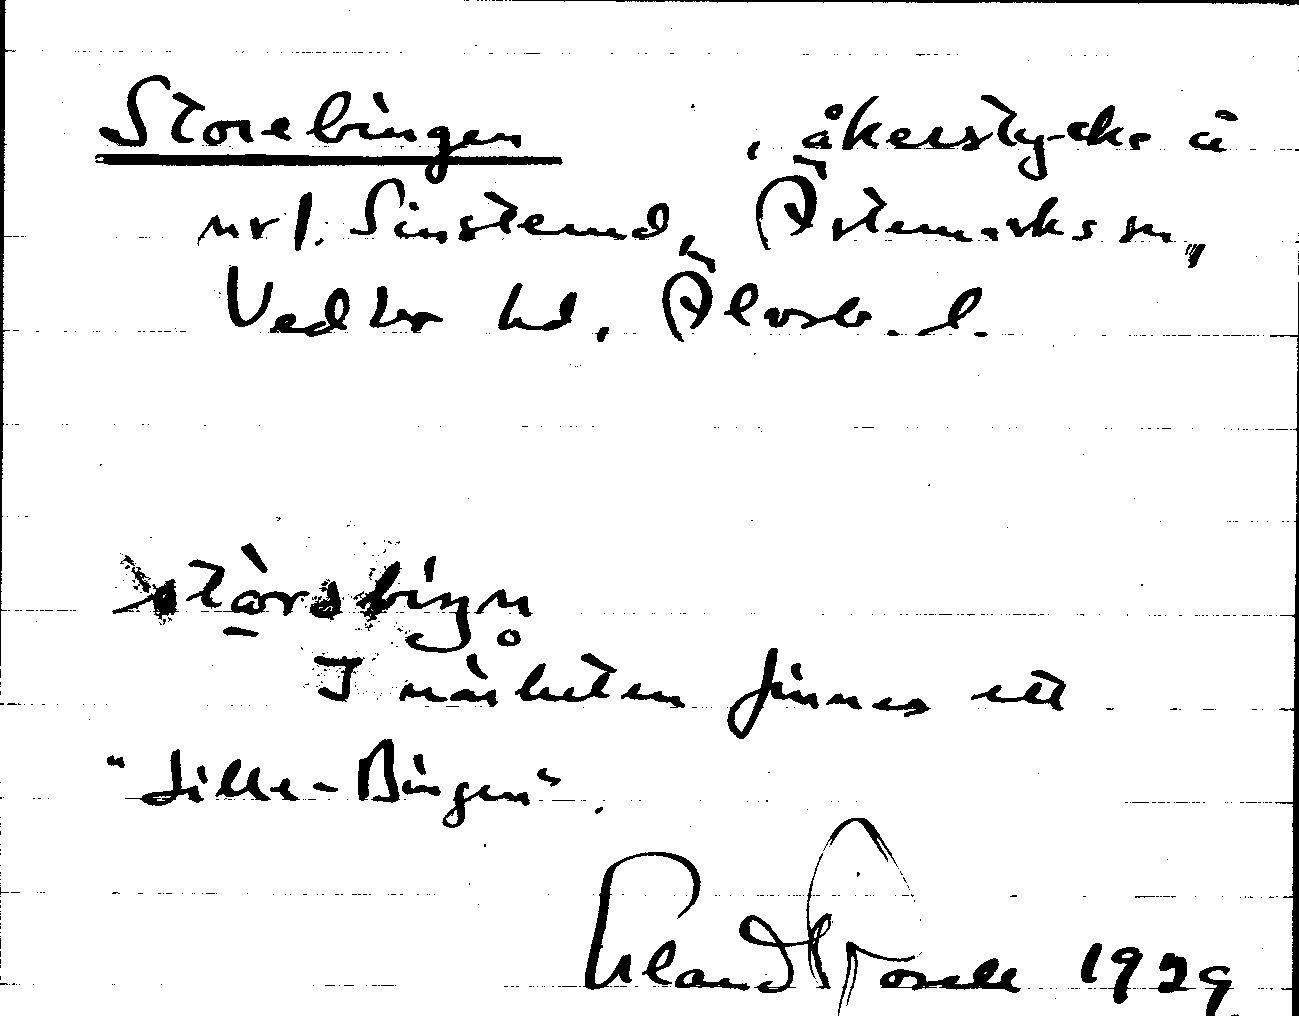 Storebingen , åkerstycke å
nr 1. Sinstemd, Östemarks sn,
Vedbo hd, Älvsb. l.
I närheten finnes ett
"Lille-Bingen".
Erland Rosell 1929